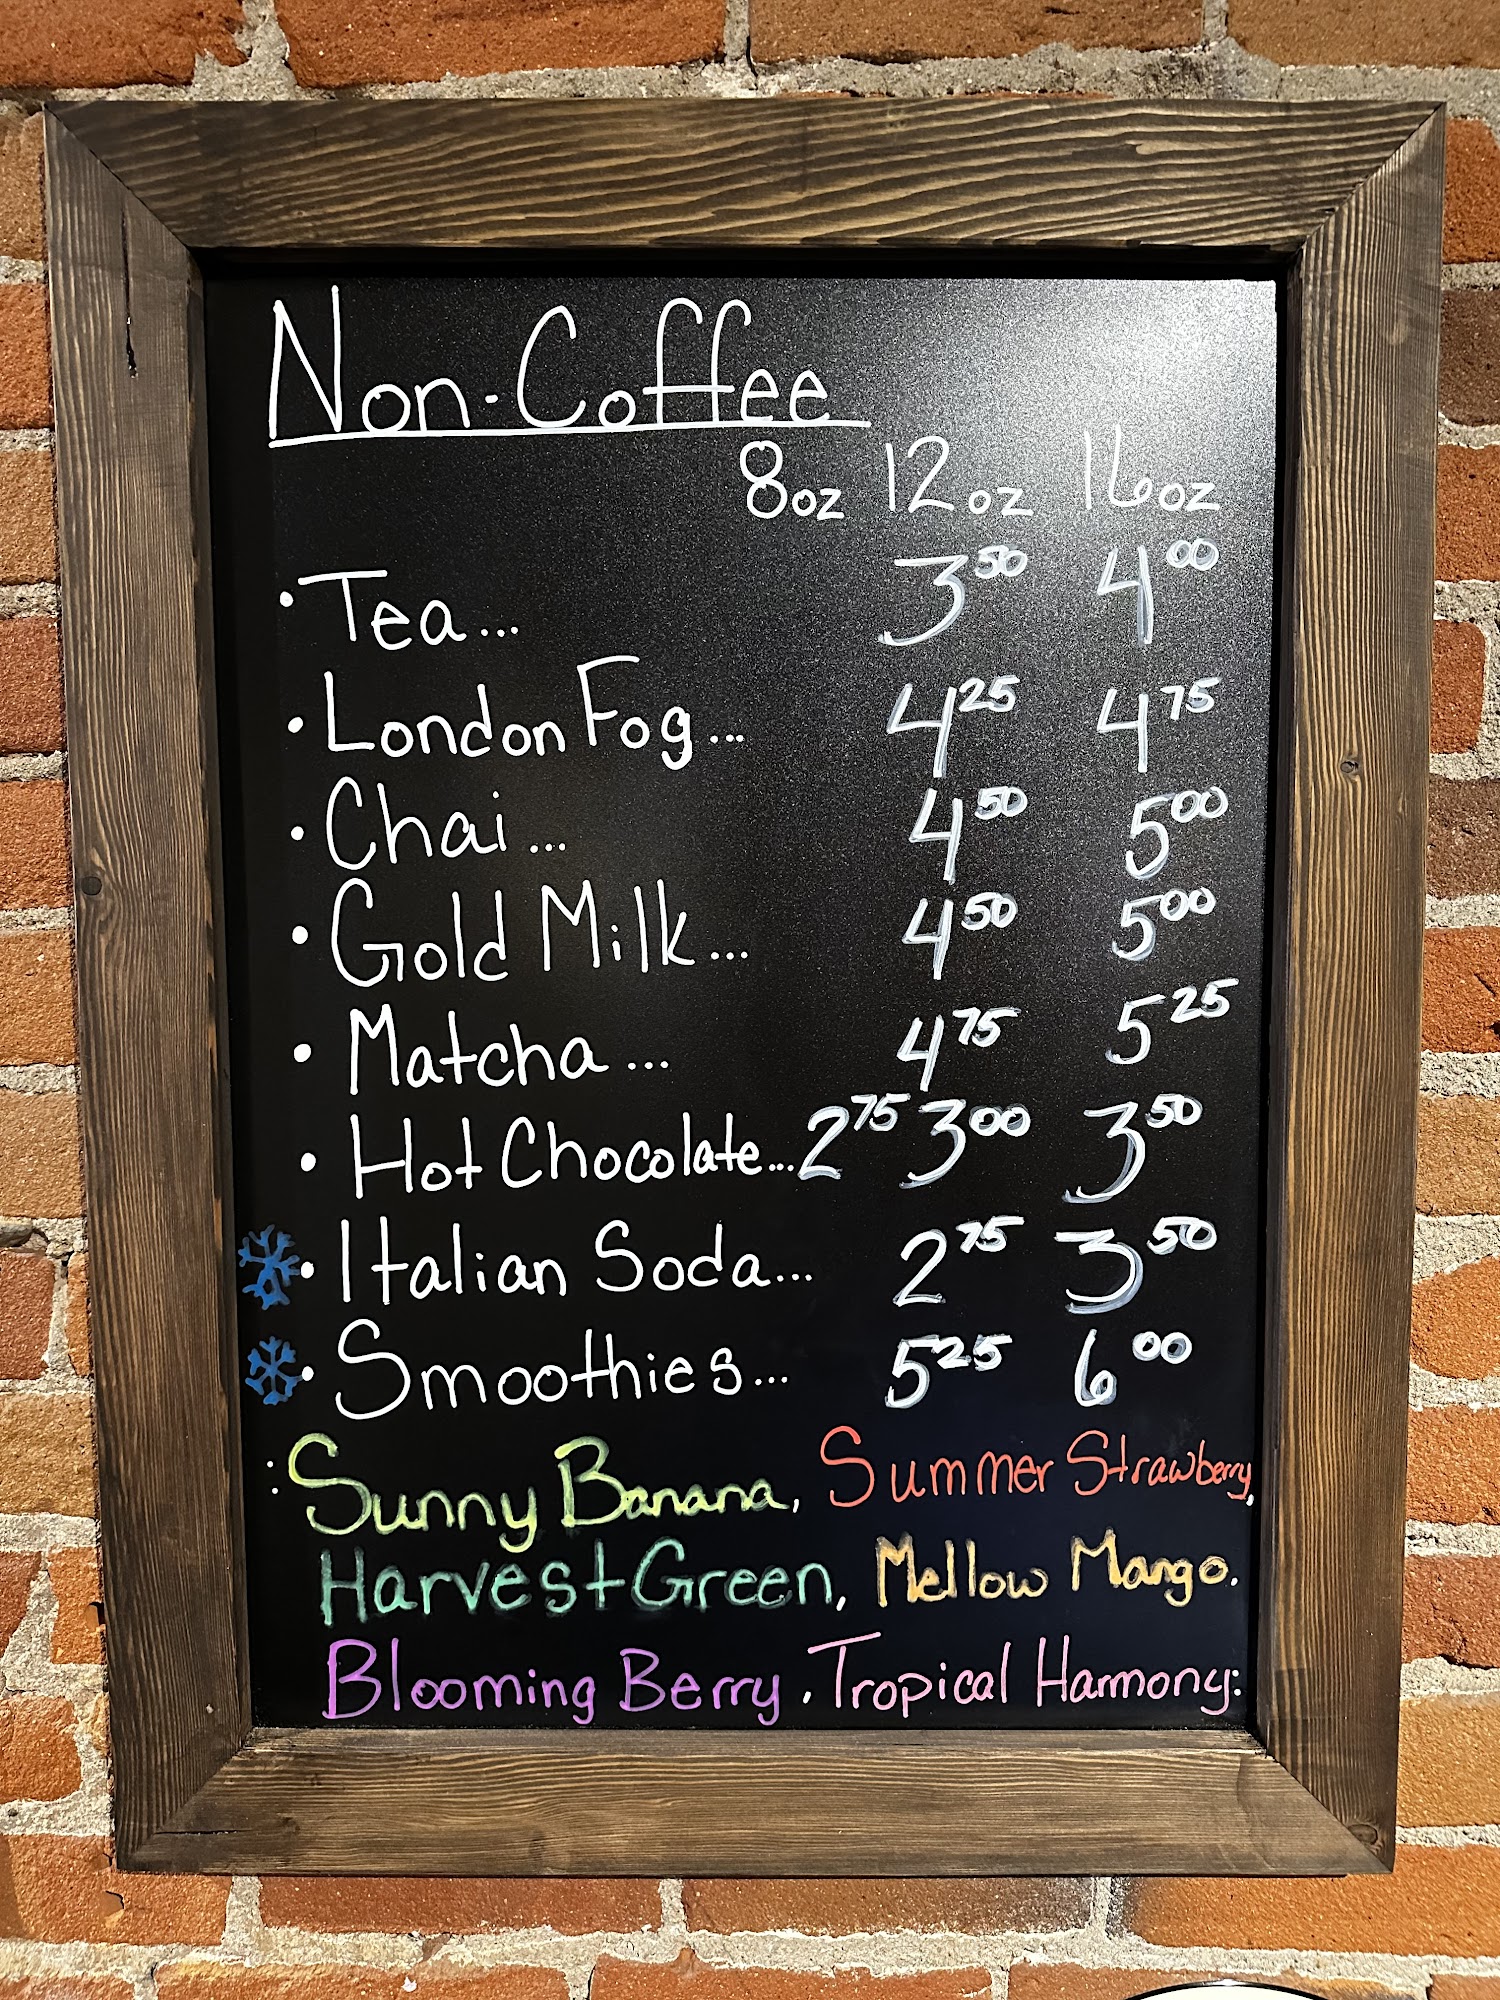 Non-Coffee
8oz 12oz 16oz
• Tea... 3⁵⁰ 4⁰⁰
• London Fog... 4²⁵ 4⁷⁵
• Chai... 4⁵⁰ 5⁰⁰
• Gold Milk... 4⁵⁰ 5⁰⁰
• Matcha... 4⁷⁵ 5²⁵
• Hot Chocolate... 2⁷⁵ 3⁰⁰ 3⁵⁰
• Italian Soda... 2⁷⁵ 3⁵⁰
• Smoothies... 5²⁵ 6⁰⁰
: Sunny Banana, Summer Strawberry,
Harvest Green, Mellow Mango.
Blooming Berry. Tropical Harmony: